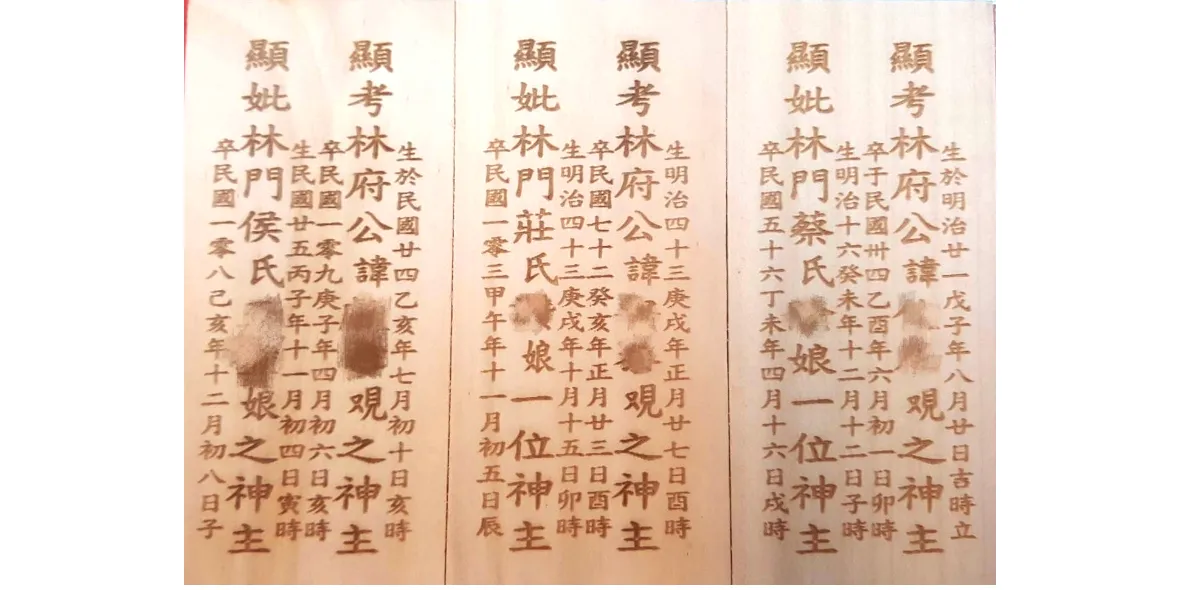 生於明治廿一戊子年八月廿日吉時立
顯考林府公諱覌之神主
卒于民國卅四乙酉年六月初一日卯時
生明治十六癸未年十二月十二日子時
顯妣林門蔡氏娘一位神主
卒民國五十六丁未年四月十六日戌時
生明治四十三庚戌年正月廿七日酉時
顯考林府公諱覌之神主
卒民國七十二癸亥年正月廿三日酉時
生明治四十三庚戌年十月十五日卯時
顯妣林門莊氏娘一位神主
卒民國一零三甲午年十一月初五日辰
生於民國廿四乙亥年七月初十日亥時
顯考林府公諱覌之神主
卒民國一零九庚子年四月初六日亥時
生民國廿五丙子年十一月初四日寅時
顯妣林門侯氏娘之神主
卒民國一零八己亥年十二月初八日子